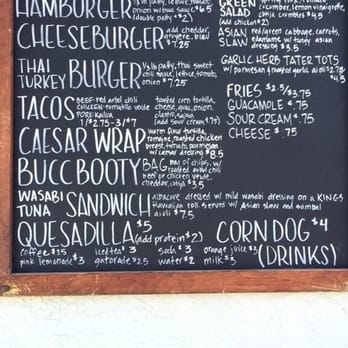 HAMBURGER 1/3 lb patty, lettuce, tomato, onion w/bbq sauce $6.5
(double patty) + $2
CHEESEBURGER add cheddar, gruyere, bleu $7.25
THAI TURKEY BURGER 1/3 lb patty, thai sweet chili sauce, lettuce, tomato, onion $7.25
TACOS BEEF: red chili CHICKEN: tomatillo verde PORK: toasted corn tortilla, cheese, onion, cilantro, salsa
1/$2.75 - 3/$7
CAESAR WRAP warm flour tortilla, romaine, roasted chicken breast, tomato, parmesan w/ caesar dressing $8.5
BUCC BOOTY BAG bag of chips, w/ roasted chili beef or chicken verde, cheddar, $3.5
WASABI TUNA SANDWICH albacore dressed w/ mild wasabi dressing on a KINGS Hawaiian roll. served w/ Asian slaw and sambal aioli $7.5
QUESADILLA $5 (add protein $2)
CORN DOG $4
GREEN SALAD cucumber, lemon vinaigrette, feta crumbles $4.5
(add chicken $2)
ASIAN SLAW red/green cabbage, carrots, edamame w/ tangy asian dressing $3.5
GARLIC HERB TATER TOTS w/ parmesan & roasted garlic aioli $2.75/$4.5
FRIES $2.5/$3.75
GUACAMOLE $.75
SOUR CREAM $.75
CHEESE $.75
(DRINKS)
coffee $1.5 iced tea $3 soda $3 orange juice $3
pink lemonade $3 gatorade $2.5 water $2 milk $3